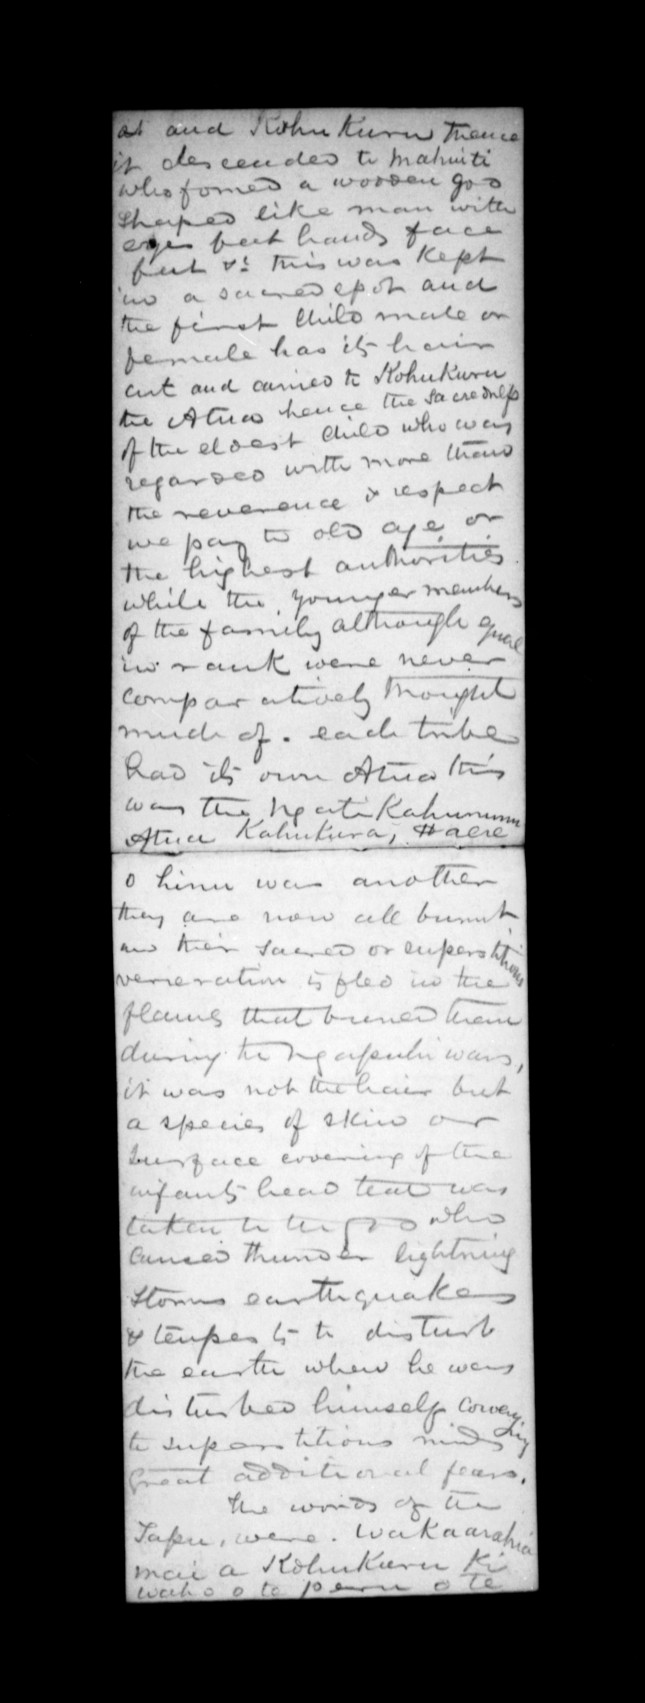 and Kohu Kuru thence
it descended to Mahuiti
who fomed a wooden god
shaped like man with
eyes feet hands face
feet &c this was kept
in a sacred spot and
the first child male or
female has its hair
cut and carried to Kohukuru
the Atua hence the sacredness
of the eldest child who was
regarded with more than
the reverence & respect
we pay to old age or
the highest authorities
while the younger members
of the family although equal
in rank were never
comparatively thought
much of. each tribe
had its own Atua this
was the Ngati Kahununu
Atua Kahukura, Haere
o hinu was another
they are now all burnt
and their sacred or superstitious
veneration is fled in the
flames that burned them
during the Ngapuhi wars,
it was not the hair but
a species of skin or
surface covering of the
infants head that was
taken to the god who
caused thunder lightning
storms earthquakes
& tempests to disturb
the earth when he was
disturbed himself conveying
to superstitious minds
great additional fears.
The words of the
Tapu, were. Wakaarahia
mai a Kohukuru ki
waho o te o te